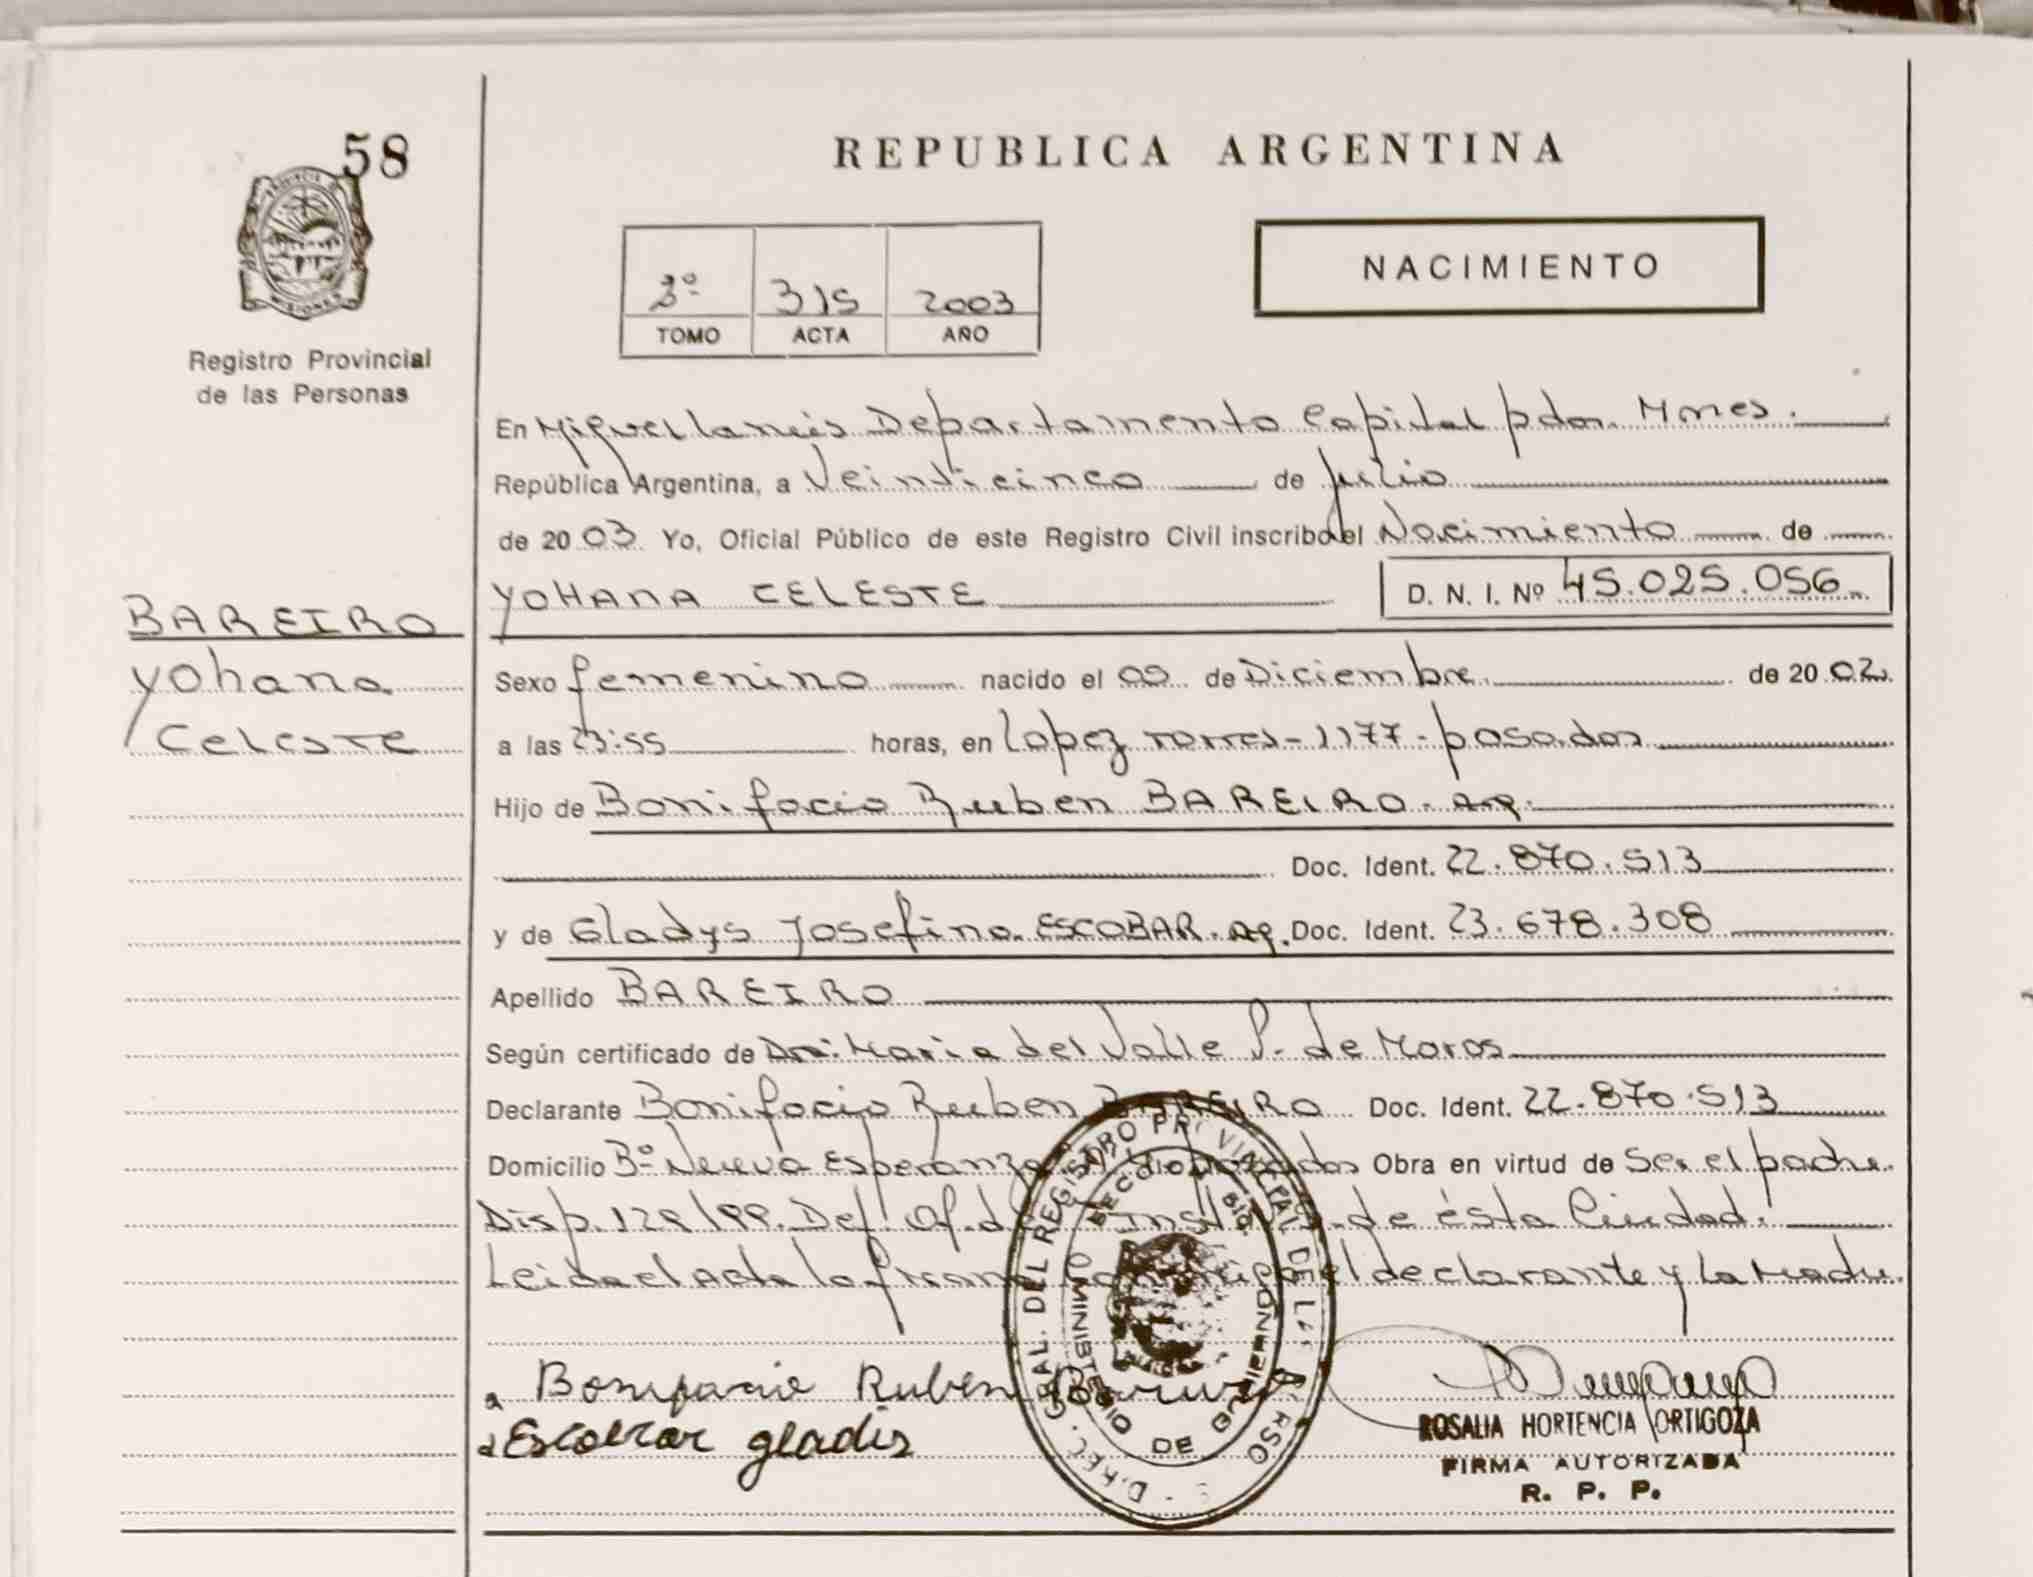 58
REPUBLICA ARGENTINA
2º 315 2003
TOMO ACTA AÑO
NACIMIENTO
MISIONES
Registro Provincial
de las Personas
En Miguel Lanús Departamento Capital pdas. Mnes.
República Argentina, a Veinticinco de Julio
de 2003 Yo, Oficial Público de este Registro Civil inscribo el Nacimiento de
YOHANA CELESTE D. N. I. Nº 45.025.056
BAREIRO
Yohana
Celeste
Sexo femenino nacido el 09 de Diciembre de 2002
a las 23:55 horas, en Lopez Torres - 1177 - posadas
Hijo de Bonifacio Ruben BAREIRO. arg.
Doc. Ident. 22.870.513
y de Gladys Josefina ESCOBAR. arg. Doc. Ident. 23.678.308
Apellido BAREIRO
Según certificado de Dra. Maria del Valle S. de Moros
Declarante Bonifacio Ruben BAREIRO Doc. Ident. 22.870.513
Domicilio Bº Nueva Esperanza posadas Obra en virtud de Ser el padre
Disp. 129/99. Def. Of. de de ésta Ciudad.
Leida el Acta la firman conmigo el declarante y la Madre.
Bonifacio Ruben Bareiro
Escobar gladis
DIREC. GRAL. DEL REGISTRO PROVINCIAL DE LAS PERSONAS
MINISTERIO DE GOBIERNO
ROSALIA HORTENCIA ORTIGOZA
FIRMA AUTORIZADA
R. P. P.